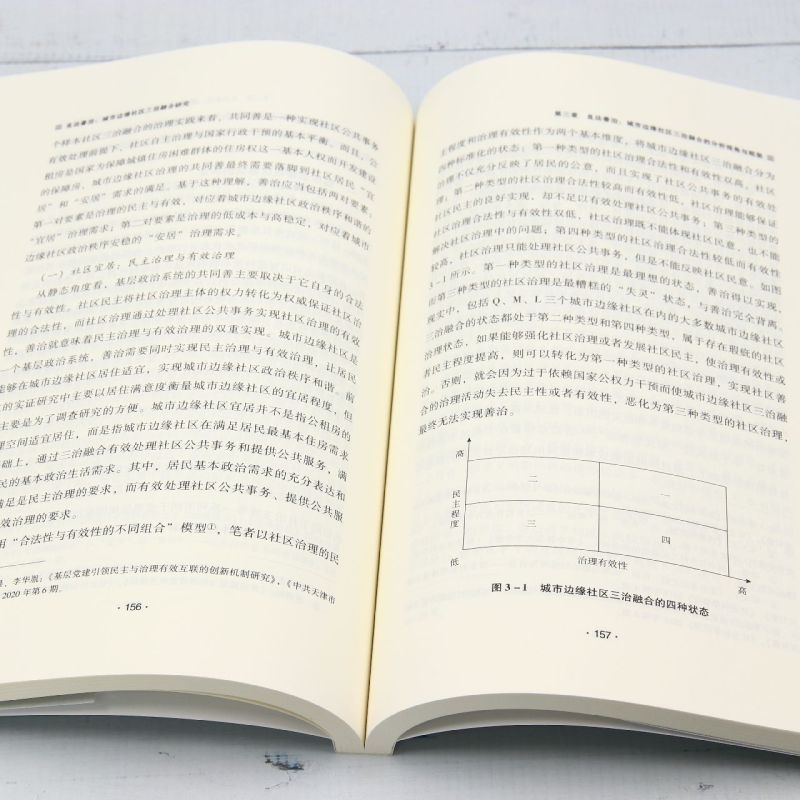 良法善治：城市边缘社区三治融合研究
个样本社区三治融合的治理实践来看，共同善是一种实现社区公共事务
有效处理前提下，社区自主治理与国家行政干预的基本平衡。而且，公
租房是国家为保障城镇住房困难群体的住房权这一基本人权而开发建设
的保障房，城市边缘社区治理的共同善最终需要落脚到社区居民“宜
居”和“安居”需求的满足。基于这种理解，善治应当包括两对要素：
第一对要素是治理的民主与有效，对应着城市边缘社区政治秩序和谐的
“宜居”治理需求；第二对要素是治理的低成本与高稳定，对应着城市
边缘社区政治秩序安稳的“安居”治理需求。
（一）社区宜居：民主治理与有效治理
从静态角度看，基层政治系统的共同善主要取决于它自身的合法
性与有效性。社区民主将社区治理主体的权力转化为权威保证社区治
理的合法性，而社区治理通过处理社区公共事务实现社区治理的有效
性，善治就意味着民主治理与有效治理的双重实现。城市边缘社区是
一个基层政治系统，善治需要同时实现民主治理与有效治理，让居民
能够在城市边缘社区居住适宜，实现城市边缘社区政治秩序和谐。前
的实证研究中主要以居住满意度衡量城市边缘社区的宜居程度，但
主要是为了调查研究的方便。城市边缘社区宜居并不是指公租房的
理空间适宜居住，而是指城市边缘社区在满足居民最基本住房需求
础上，通过三治融合有效处理社区公共事务和提供公共服务，满
民的基本政治生活需求。其中，居民基本政治需求的充分表达和
满足是民主治理的要求，而有效处理社区公共事务、提供公共服
效治理的要求。
用“合法性与有效性的不同组合”模型①，笔者以社区治理的民
、李华胤：《基层党建引领民主与治理有效互联的创新机制研究》，《中共天津市
2020年第6期。
·156·
第三章 良法善治：城市边缘社区三治融合的分析视角与框架
主程度和治理有效性作为两个基本维度，将城市边缘社区三治融合分为
四种标准化的状态：第一种类型的社区治理合法性和有效性双高，社区
治理不仅充分反映了居民的公意，而且实现了社区公共事务的有效处
理；第二种类型的社区治理合法性较高而有效性低，社区治理能够保证
社区民主的良好实现，却不足以有效处理社区公共事务；第三种类型的
社区治理合法性与有效性双低，社区治理既不能体现社区民意，也不能
解决社区治理中的问题；第四种类型的社区治理合法性较低而有效性
较高，社区治理只能处理社区公共事务，但是不能反映社区民意。如图
3-1所示。第一种类型的社区治理是最理想的状态，善治得以实现，
而第三种类型的社区治理是最糟糕的“失灵”状态，与善治完全背离。
现实中，包括Q、M、L三个城市边缘社区在内的大多数城市边缘社区
三治融合的状态都处于第二种类型和第四种类型，属于存在瑕疵的社区
治理状态，如果能够强化社区治理或者发展社区民主，使治理有效性或
者民主程度提高，则可以转化为第一种类型的社区治理，实现社区善
治。否则，就会因为过于依赖国家公权力干预而使城市边缘社区三治融
合的治理活动失去民主性或者有效性，恶化为第三种类型的社区治理，
最终无法实现善治。
高
民主程度
低
二
一
三
四
治理有效性
高
图3-1 城市边缘社区三治融合的四种状态
·157·